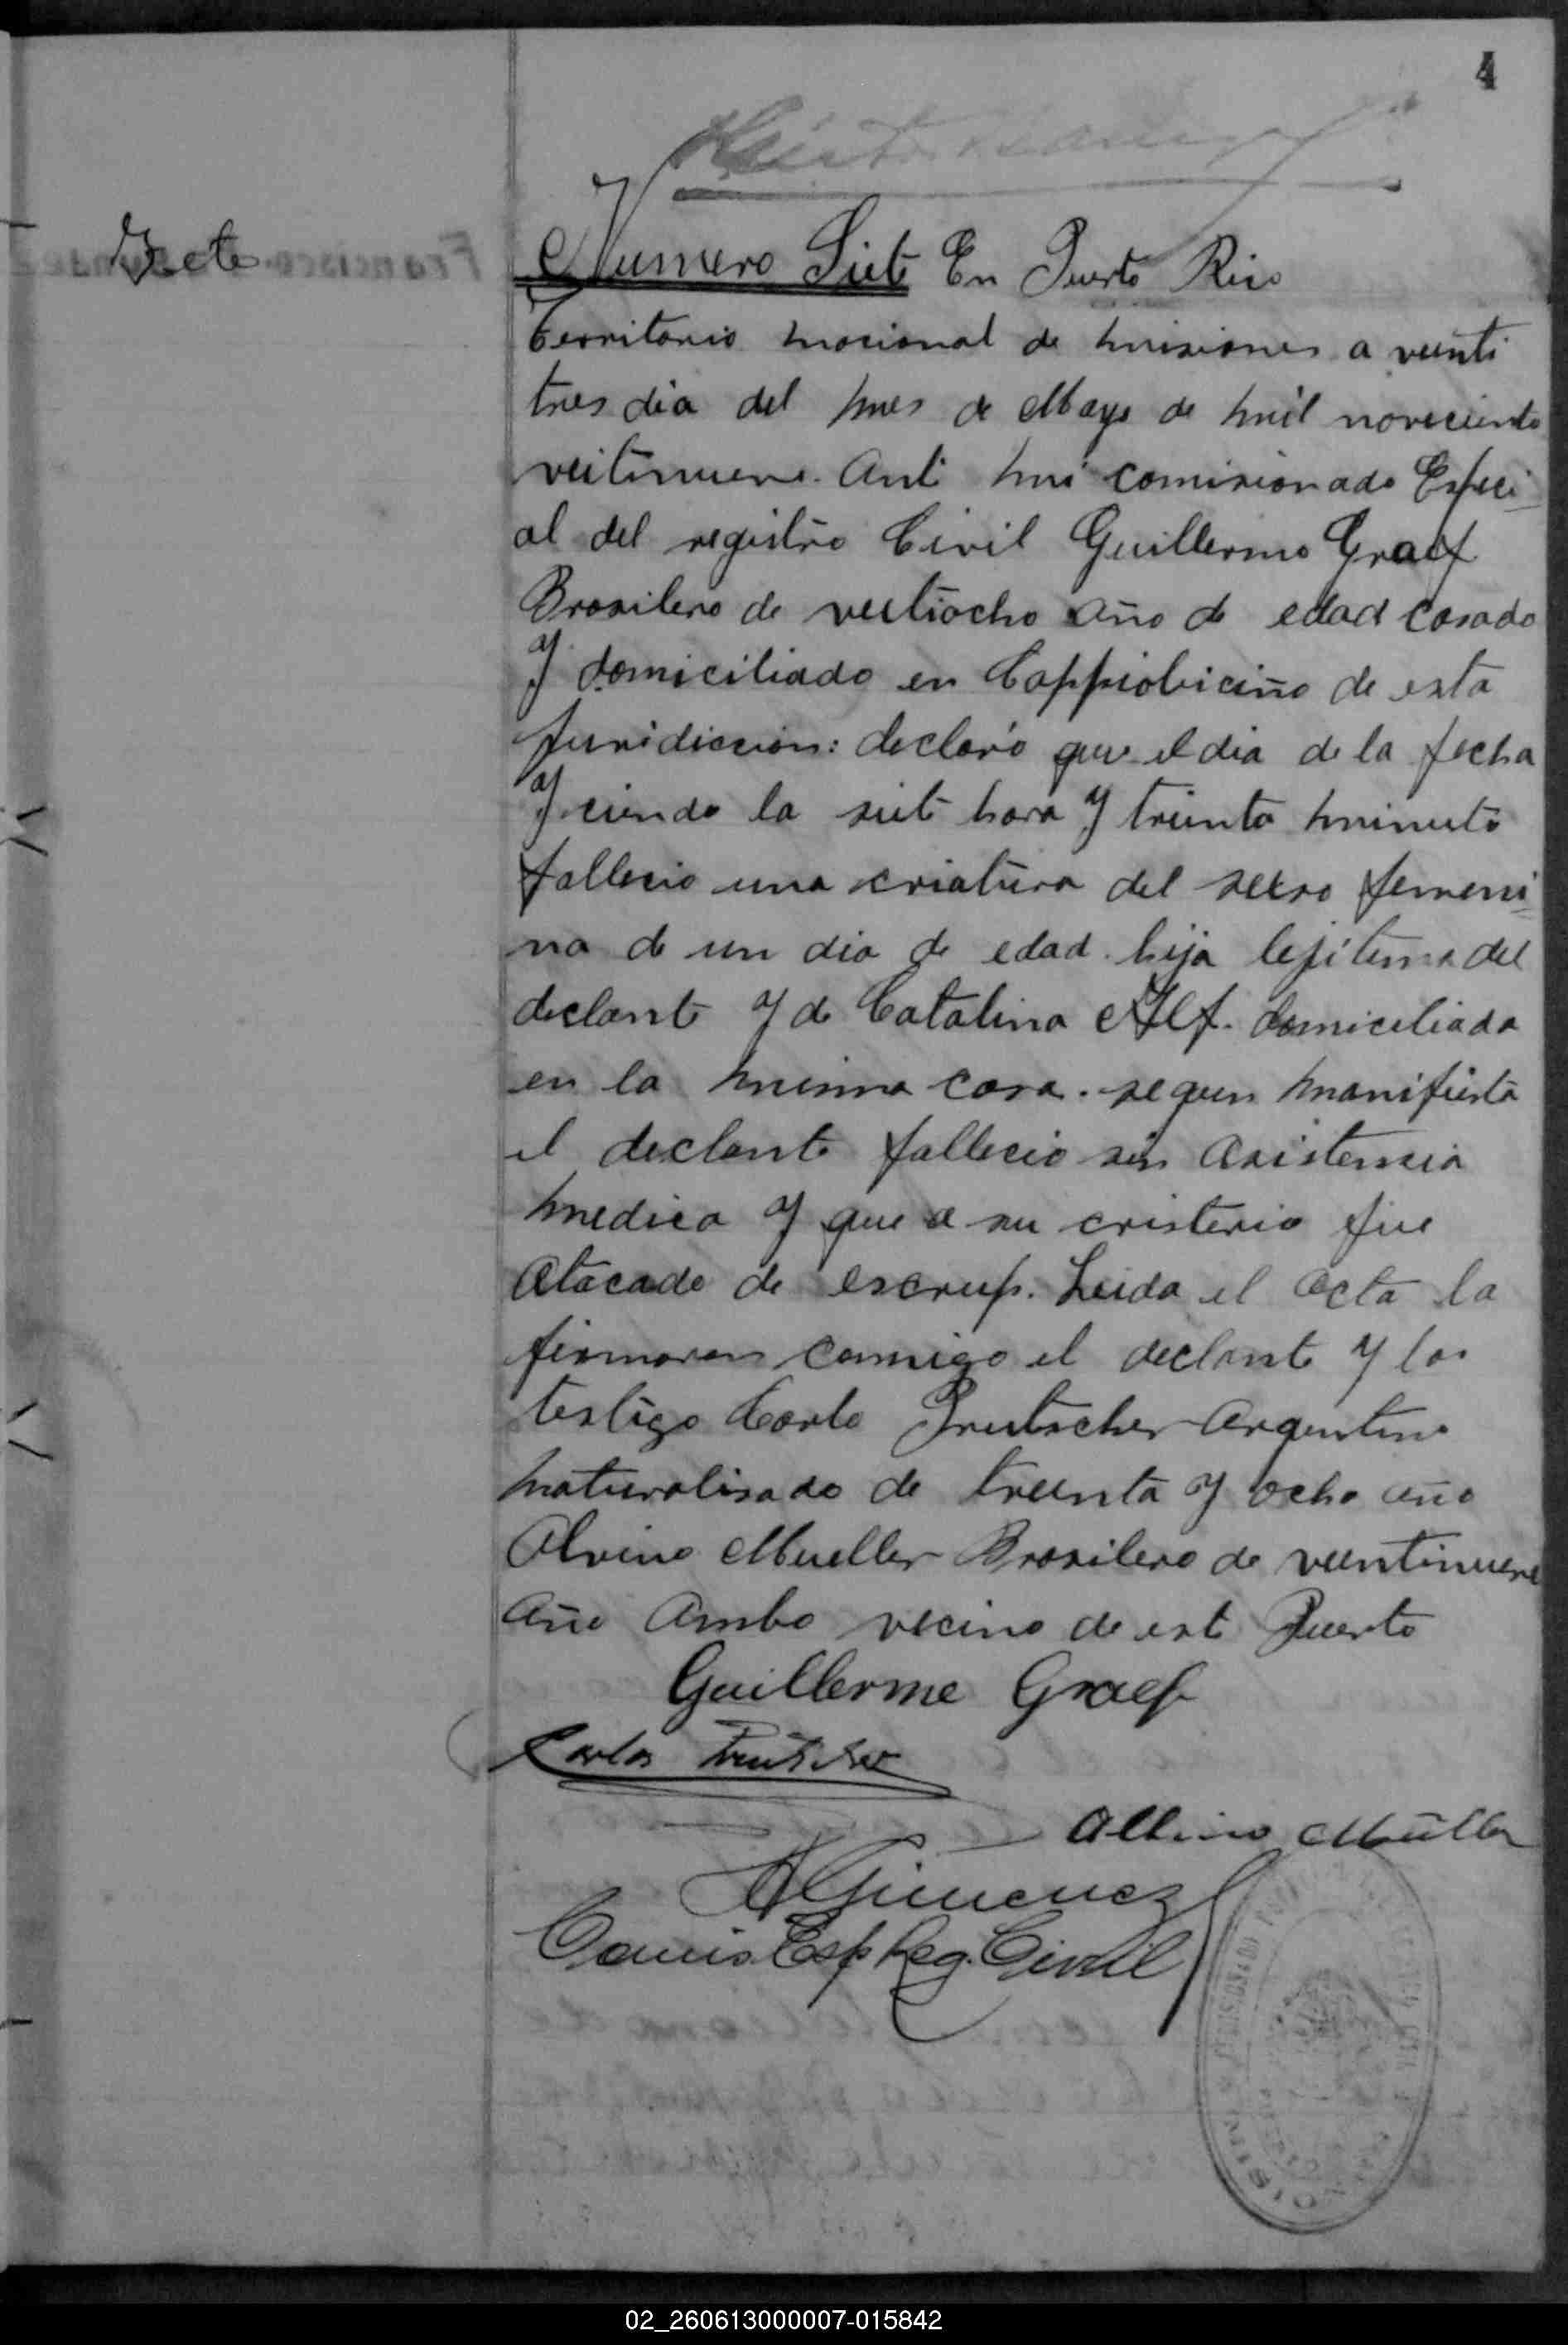 4
Feto
Numero Siete En Puerto Rico
Territorio nacional de misiones a veinti
tres dia del mes de Mayo de mil noveciento
veitinueve. Ante mi comisionado Especi
al del registro Civil Guillermo Graef
Brasilero de veitiocho año de edad casado
y domiciliado en de esta
juridiccion: declaró que el dia de la fecha
y ciendo la siete hora y treinta minuto
fallecio una criatura del sexso femeni
na de un dia de edad. hija lejitima del
declante y de Catalina domiciliada
en la misma casa. segun manifiesta
el declante fallecio sin asistencia
medica y que a su cristerio fue
atacado de escrup. Leida el acta la
firmaron comigo el declante y los
testigo Carlo Prutscher Argentino
naturalisado de treinta y ocho año
Alvino Mueller Brasilero de veintinueve
año Ambo vecino de este Puerto
Guillerme Graef
Carlos Prutscher
Albino Müller
A Gimenez
Comis. Esp Reg. Civil
02_260613000007-015842